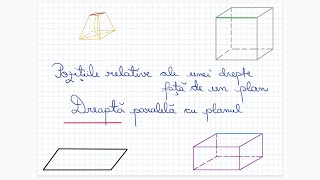 Pozițiile relative ale unei drepte
față de un plan
Dreaptă paralelă cu planul